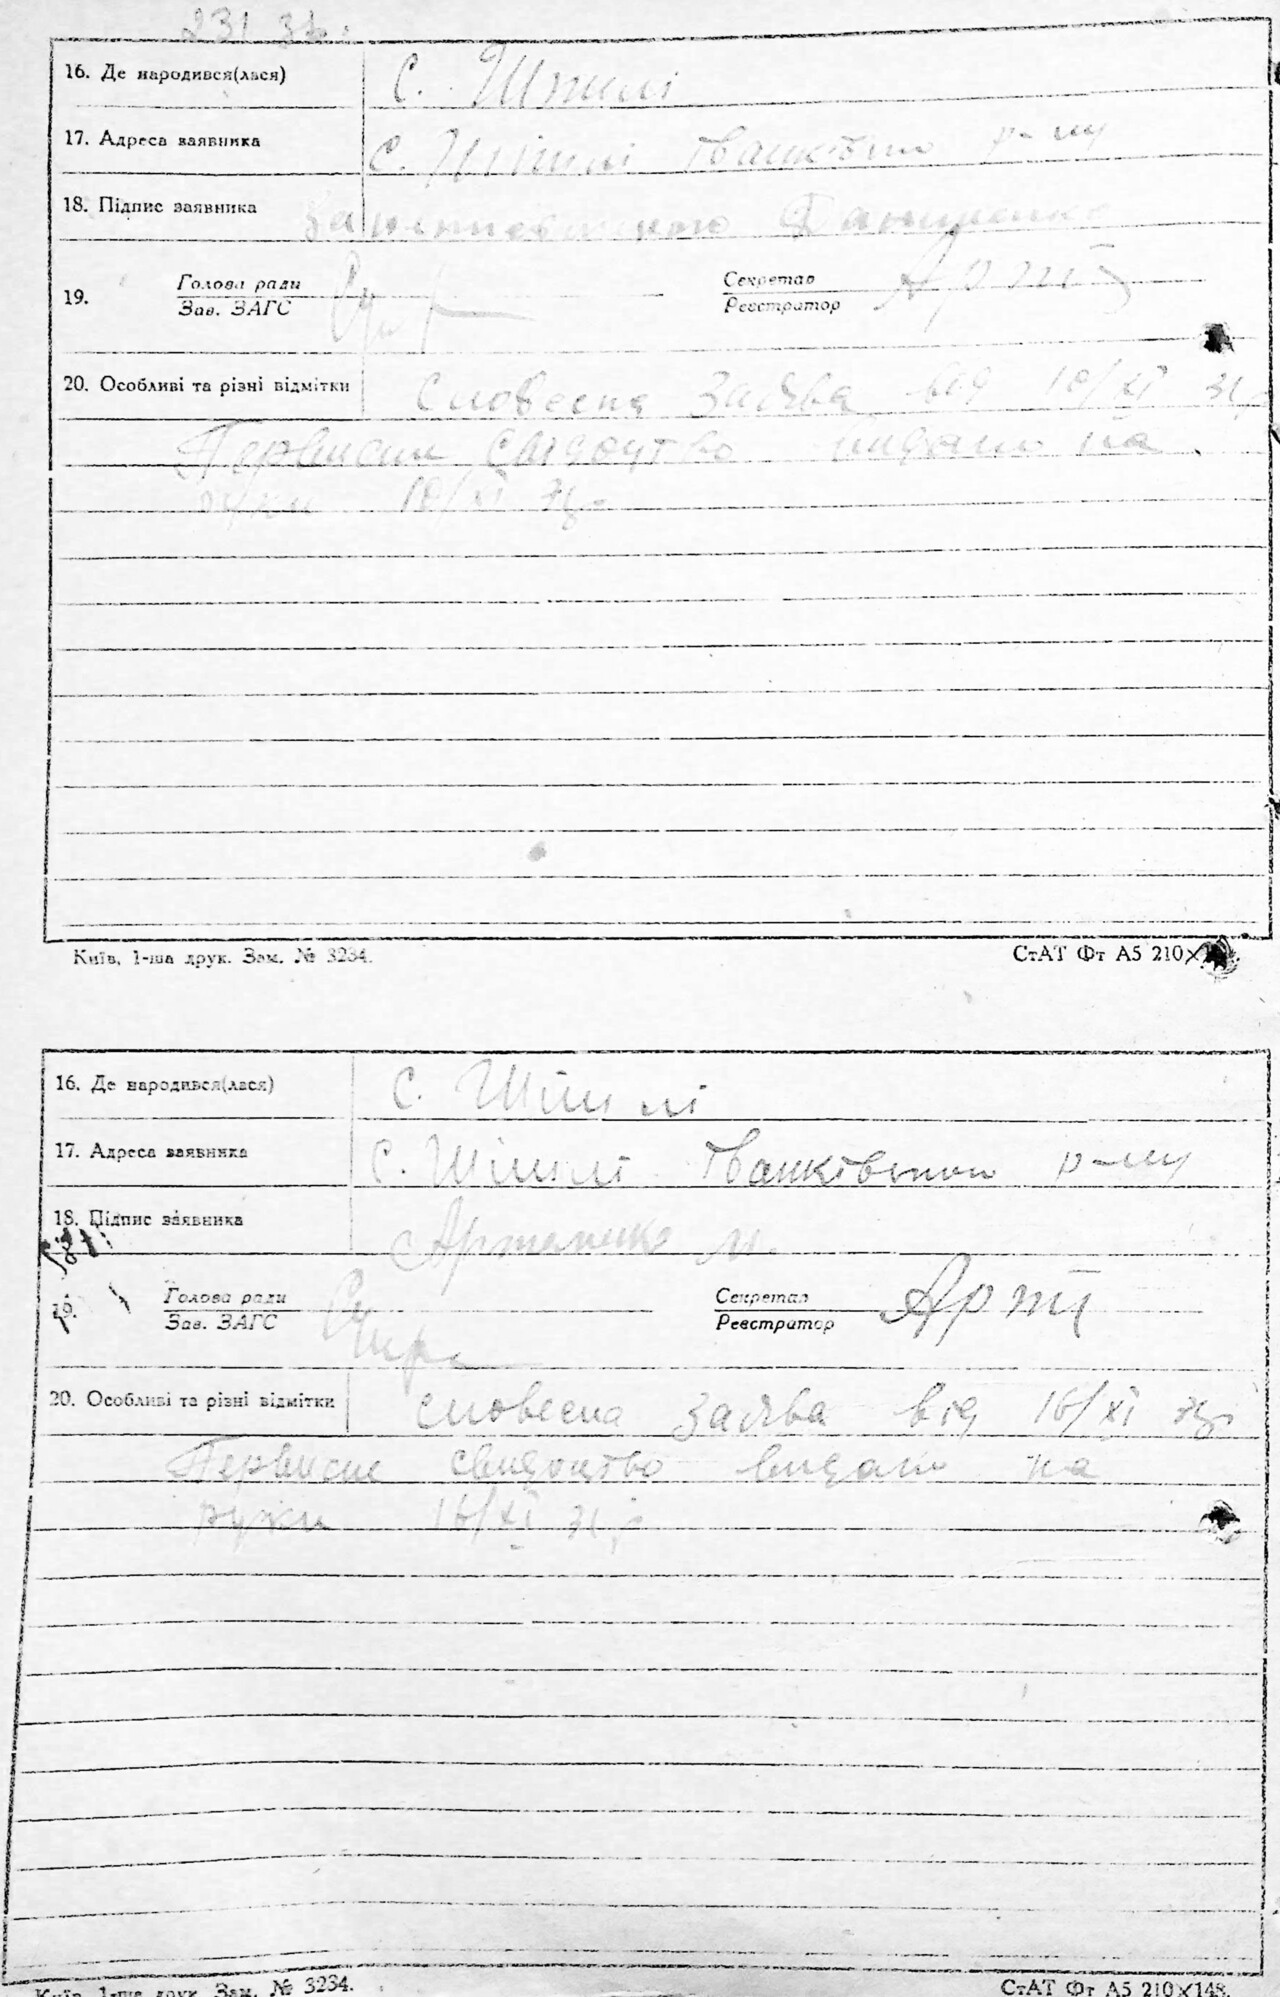 231 зв.
16. Де народився(лася) с. Шпилі
17. Адреса заявника с. Шпилі Іванківськ р-ну
18. Підпис заявника За неписьменного
Голова ради Секретар Арті
19.
Зав. ЗАГС Реєстратор
20. Особливі та різні відмітки Словесна Заява від 10/XI 31р
Первисне свідоцтво видано на
руки 10/XI 31р.
Київ, 1-ша друк. Зам. № 3234. СтАТ Фт А5 210×
16. Де народився(лася) с. Шпилі
17. Адреса заявника с. Шпилі Іванківськ р-ну
18. Підпис заявника Артеменко М.
Голова ради Секретар Арті
19.
Зав. ЗАГС Реєстратор
20. Особливі та різні відмітки Словесна Заява від 16/XI 31р.
Первисне свидоцтво видано на
руки 16/XI 31р.
Київ, 1-ша друк. Зам. № 3234. СтАТ Фт А5 210×148.